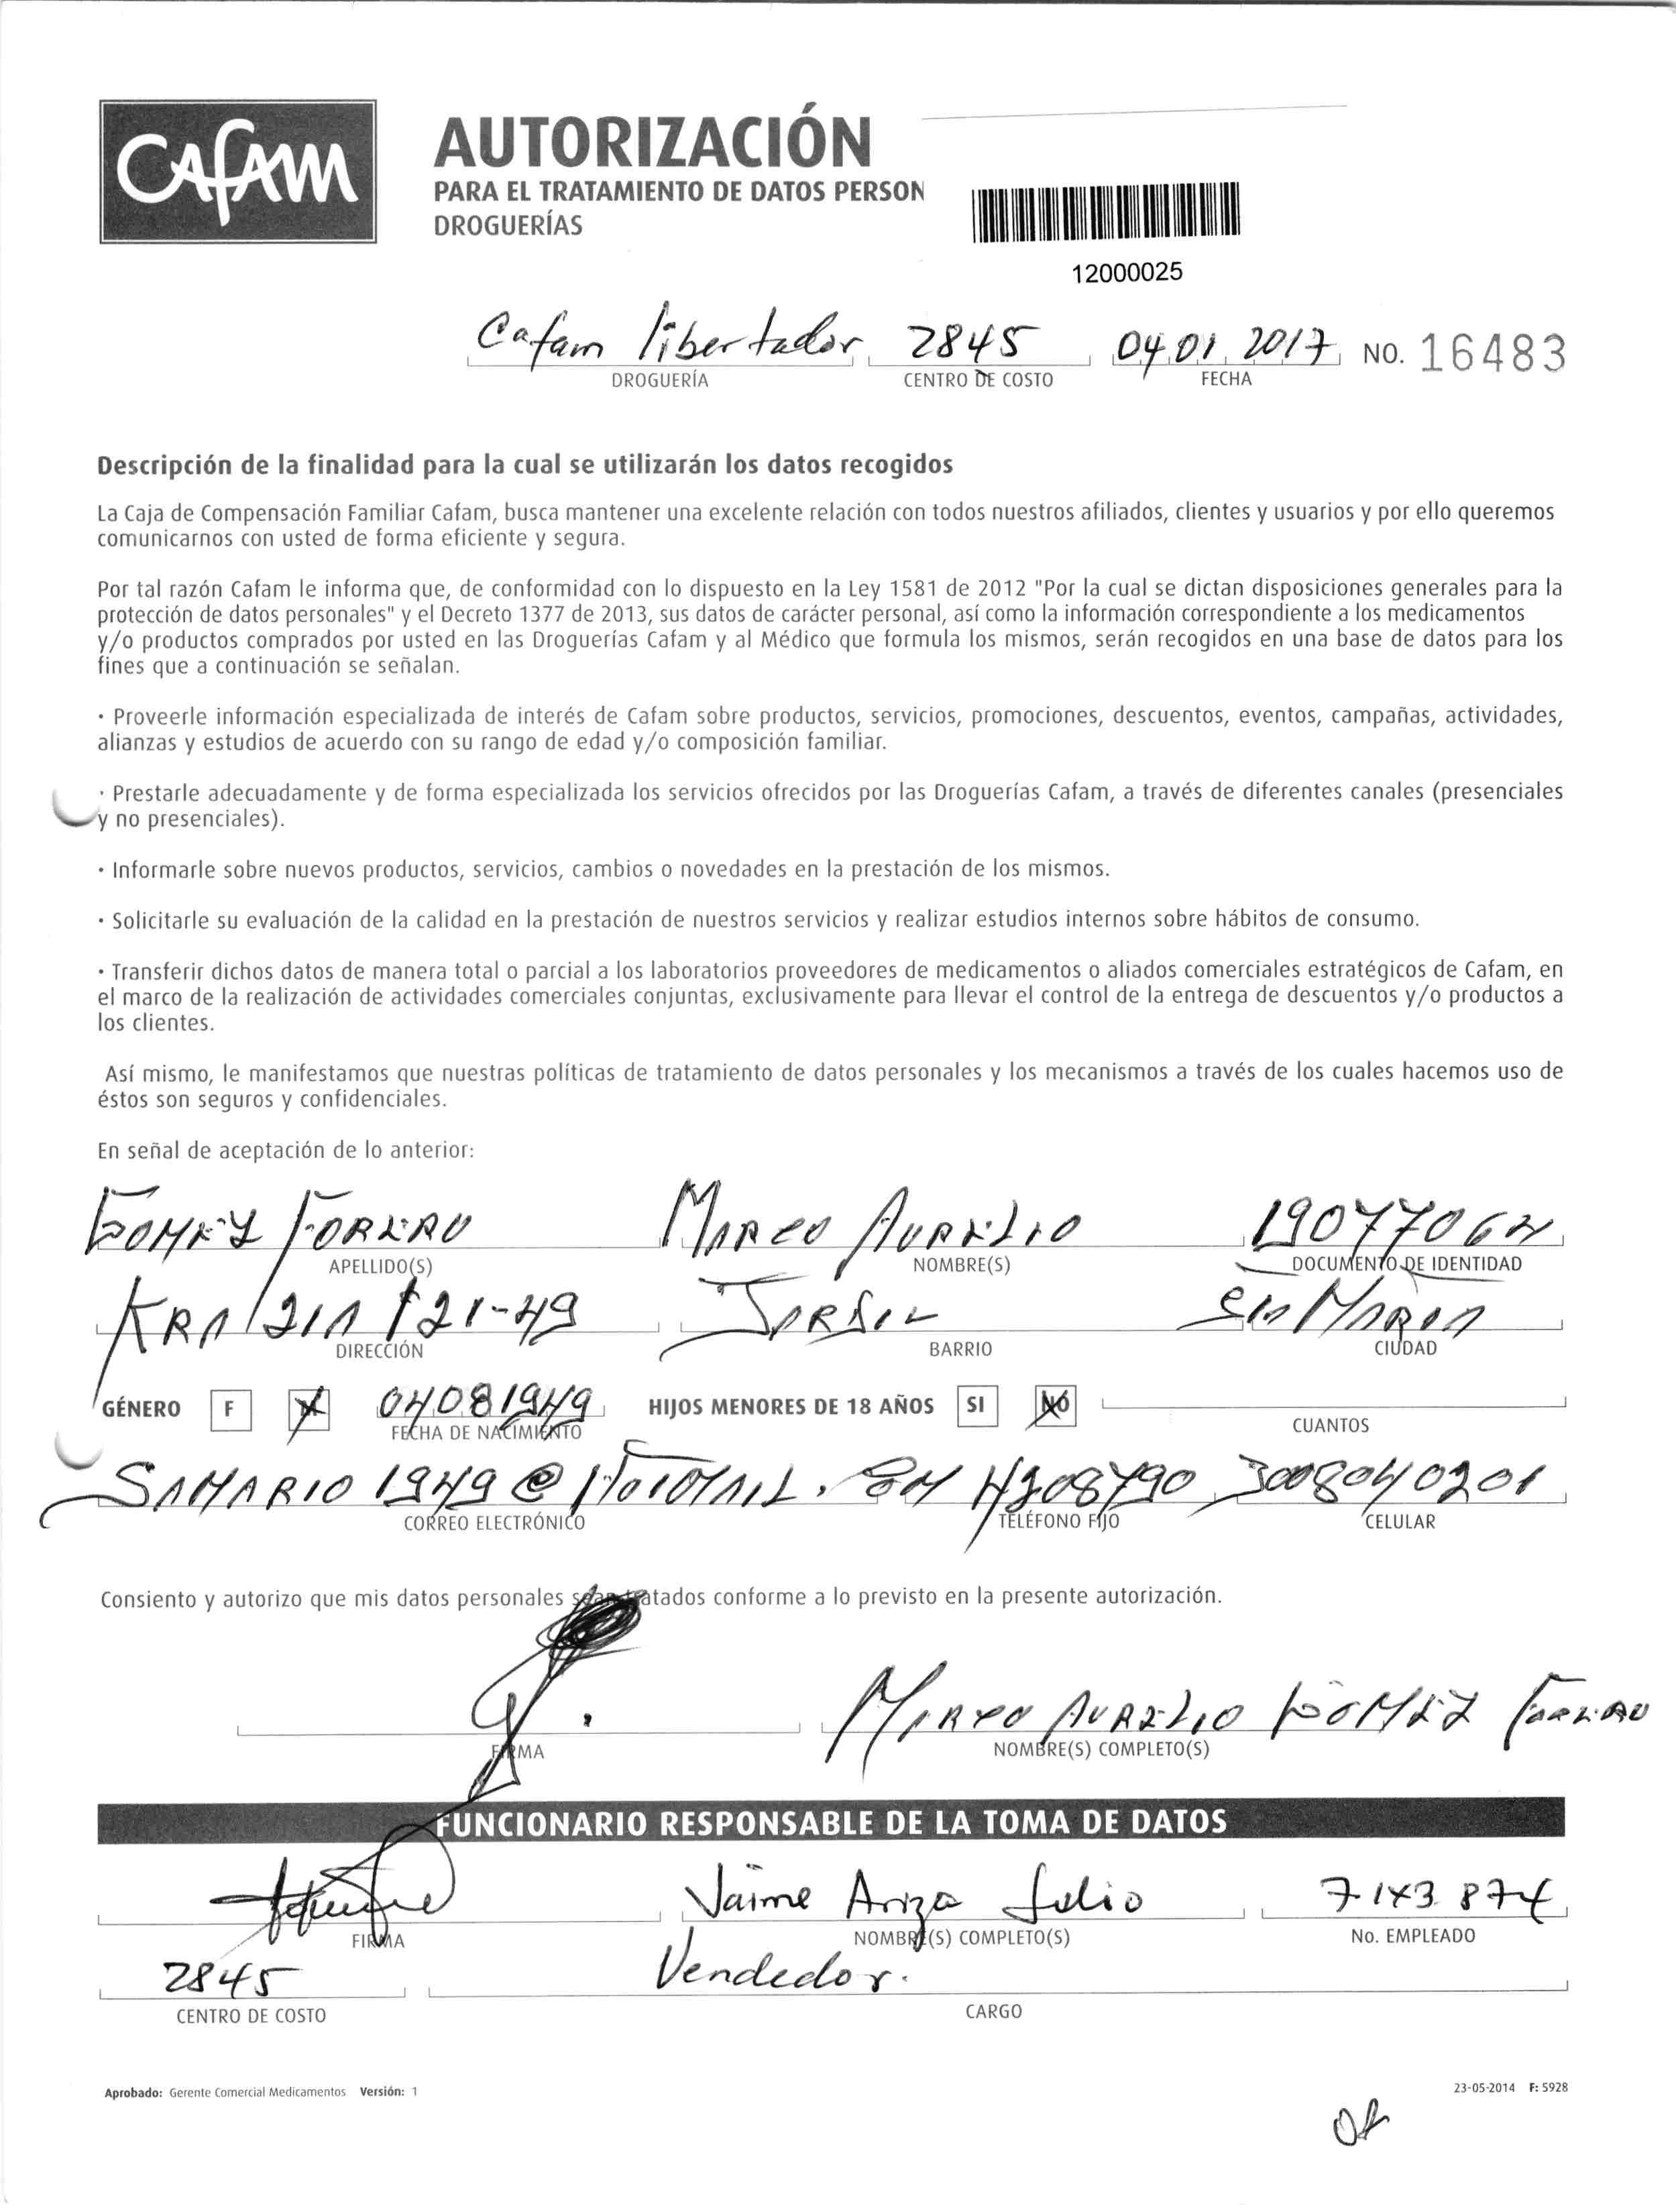 CAFAM
AUTORIZACIÓN
PARA EL TRATAMIENTO DE DATOS PERSON
DROGUERÍAS
12000025
Cafam libertador 2845 04 01 2017 NO. 16483
DROGUERÍA CENTRO DE COSTO FECHA
Descripción de la finalidad para la cual se utilizarán los datos recogidos
La Caja de Compensación Familiar Cafam, busca mantener una excelente relación con todos nuestros afiliados, clientes y usuarios y por ello queremos
comunicarnos con usted de forma eficiente y segura.
Por tal razón Cafam le informa que, de conformidad con lo dispuesto en la Ley 1581 de 2012 "Por la cual se dictan disposiciones generales para la
protección de datos personales" y el Decreto 1377 de 2013, sus datos de carácter personal, así como la información correspondiente a los medicamentos
y/o productos comprados por usted en las Droguerías Cafam y al Médico que formula los mismos, serán recogidos en una base de datos para los
fines que a continuación se señalan.
· Proveerle información especializada de interés de Cafam sobre productos, servicios, promociones, descuentos, eventos, campañas, actividades,
alianzas y estudios de acuerdo con su rango de edad y/o composición familiar.
· Prestarle adecuadamente y de forma especializada los servicios ofrecidos por las Droguerías Cafam, a través de diferentes canales (presenciales
y no presenciales).
· Informarle sobre nuevos productos, servicios, cambios o novedades en la prestación de los mismos.
· Solicitarle su evaluación de la calidad en la prestación de nuestros servicios y realizar estudios internos sobre hábitos de consumo.
· Transferir dichos datos de manera total o parcial a los laboratorios proveedores de medicamentos o aliados comerciales estratégicos de Cafam, en
el marco de la realización de actividades comerciales conjuntas, exclusivamente para llevar el control de la entrega de descuentos y/o productos a
los clientes.
Así mismo, le manifestamos que nuestras políticas de tratamiento de datos personales y los mecanismos a través de los cuales hacemos uso de
éstos son seguros y confidenciales.
En señal de aceptación de lo anterior:
GOMEZ FORERO MARCO AURELIO
APELLIDO(S) NOMBRE(S) DOCUMENTO DE IDENTIDAD
KRA 21A #21-49 Sta MARTA
DIRECCIÓN BARRIO CIUDAD
GÉNERO F M 04081949 HIJOS MENORES DE 18 AÑOS SI NO
FECHA DE NACIMIENTO CUANTOS
SAMARIO 1949 @ HOTMAIL. 4208790 3008040201
CORREO ELECTRÓNICO TELÉFONO FIJO CELULAR
Consiento y autorizo que mis datos personales sean tratados conforme a lo previsto en la presente autorización.
MARCO AURELIO GOMEZ FORERO
FIRMA NOMBRE(S) COMPLETO(S)
FUNCIONARIO RESPONSABLE DE LA TOMA DE DATOS
Jaime Ariza Julio 7.143.874
FIRMA NOMBRE(S) COMPLETO(S) No. EMPLEADO
2845 Vendedor.
CENTRO DE COSTO CARGO
Aprobado: Gerente Comercial Medicamentos Versión: 1 23-05-2014 F: 5928